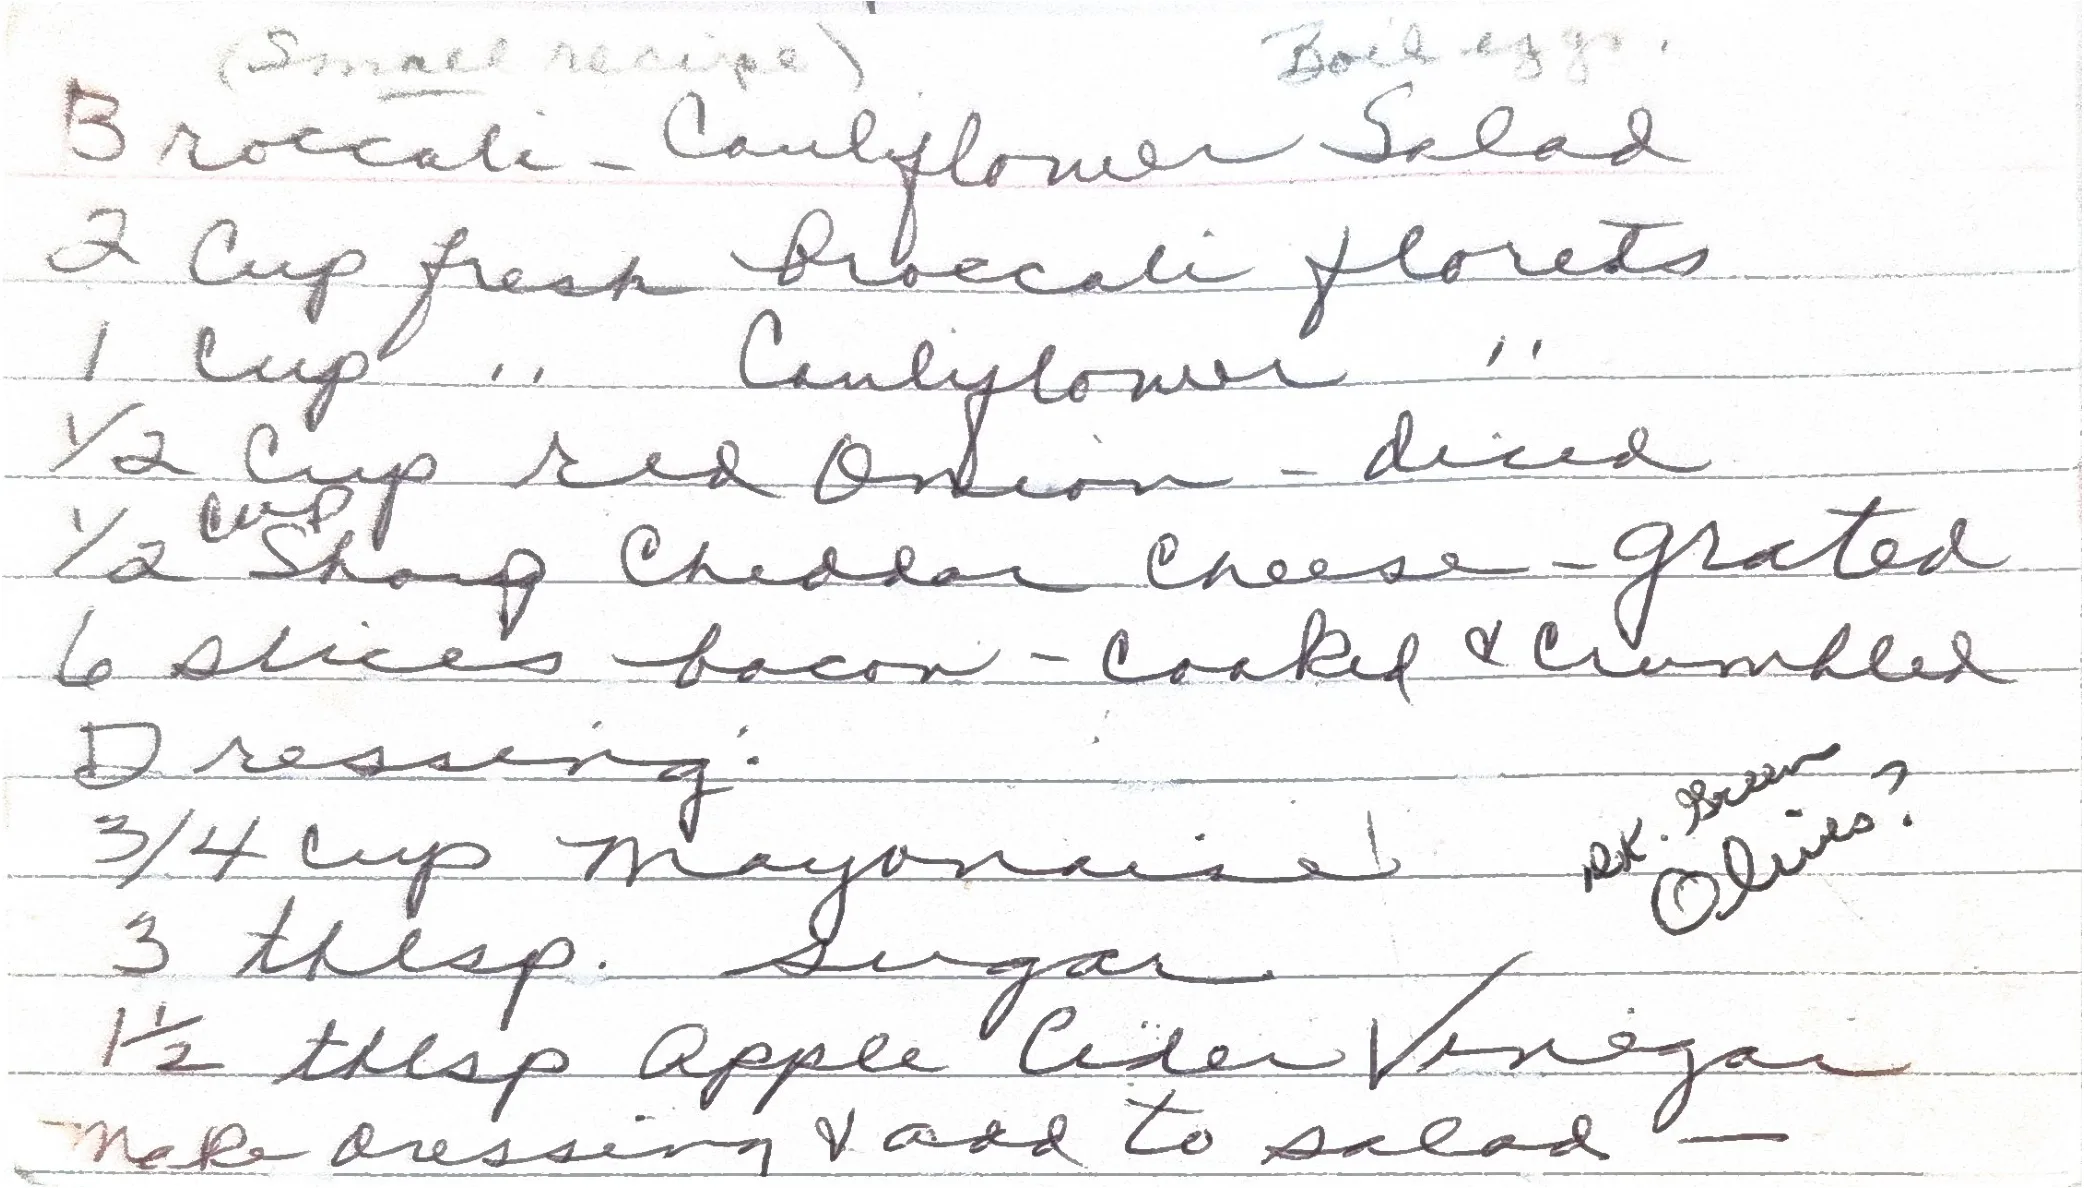 (Small recipe) Boil eggs.
Broccali - Cauliflower Salad
2 Cup fresh broccali florets
1 Cup " Cauliflower "
1/2 Cup red Onion - diced
1/2 cup Sharp Cheddar Cheese - grated
6 slices bacon - Cooked & Crumbled
Dressing:
3/4 Cup Mayonaise
Green
Olives?
3 tblsp. Sugar
1 1/2 tblsp Apple Cider Vinegar
Make dressing & add to salad —